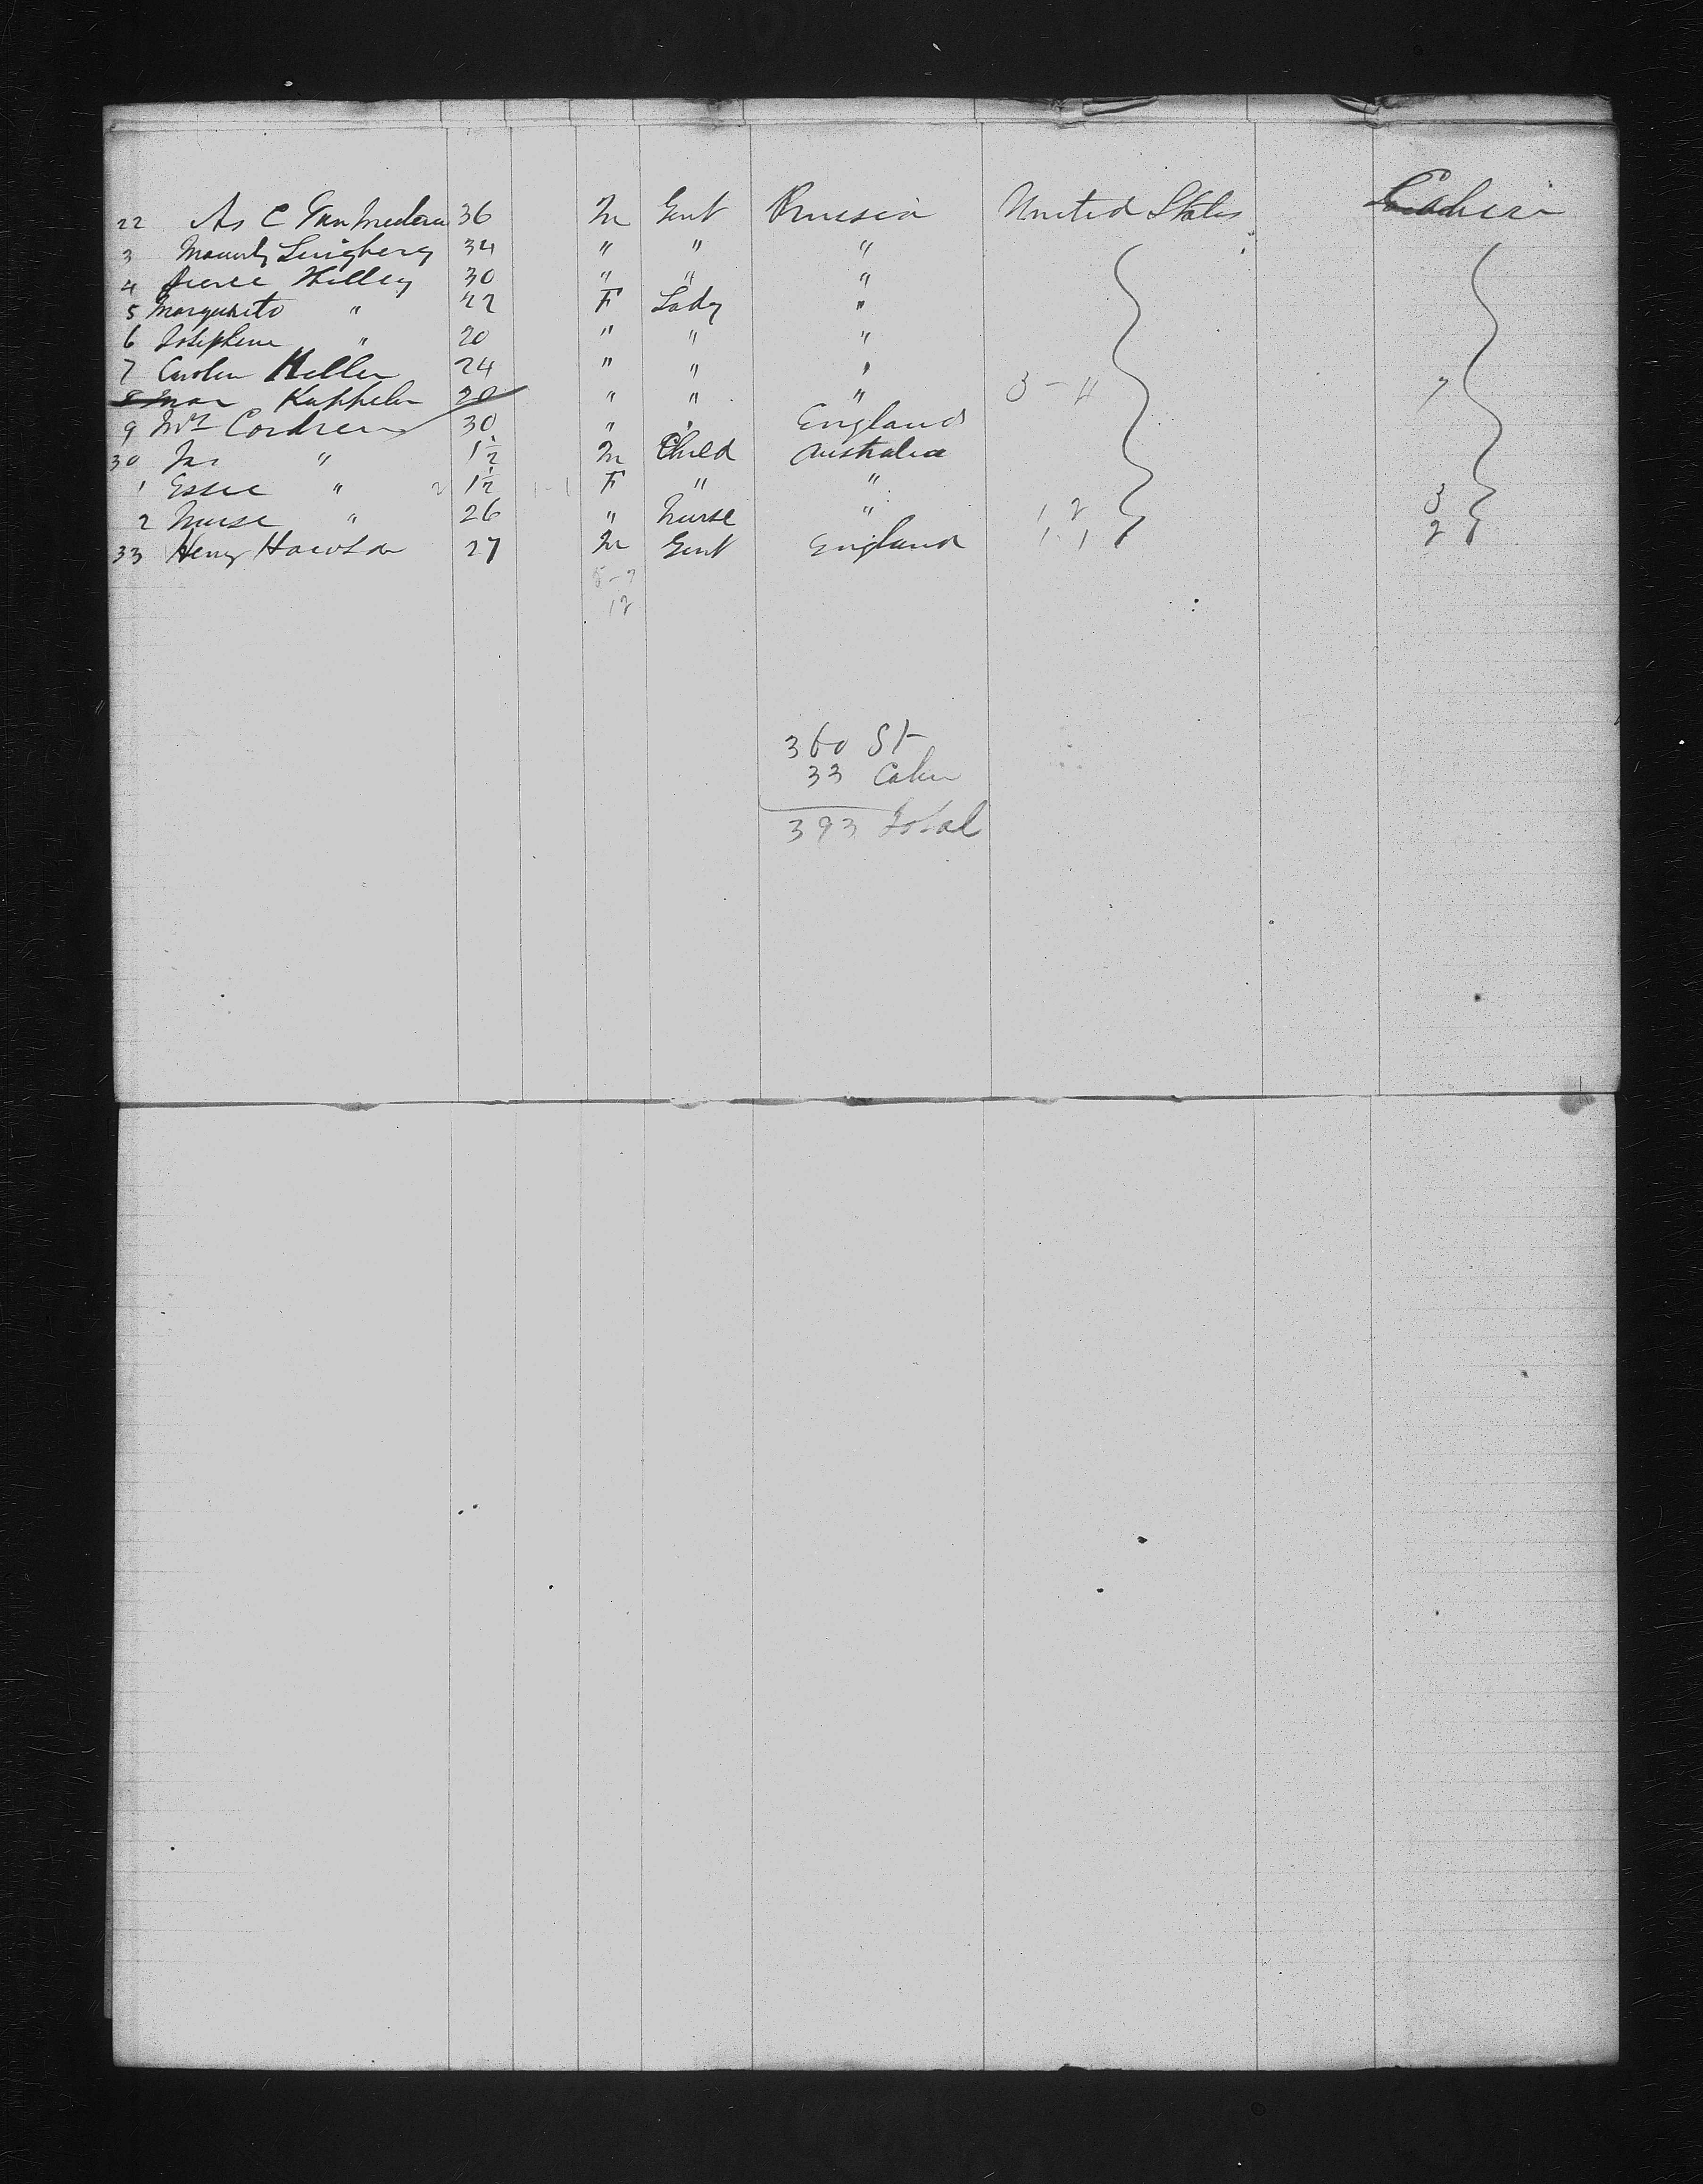 22 As C 36 M Gent Prussia United States Cabin
3 Lingberg 34 " " "
4 Pierre Hilley 30 " " "
5 Marguerite " 22 F Lady "
6 Josephine " 20 " " "
7 Carolin Heller 24 " " "
8 Kappeler 20 " " " 3-4 7
9 Mrs Cordren 30 " " England
30 Jas " 1½ M Child Australia
1 Essie " 2 1½ 1-1 F " " 3
2 Nurse " 26 " Nurse " 1 2
33 Henry 27 M Gent England 1-1 2
5-7
12
360 St
33 Cabin
393 Total